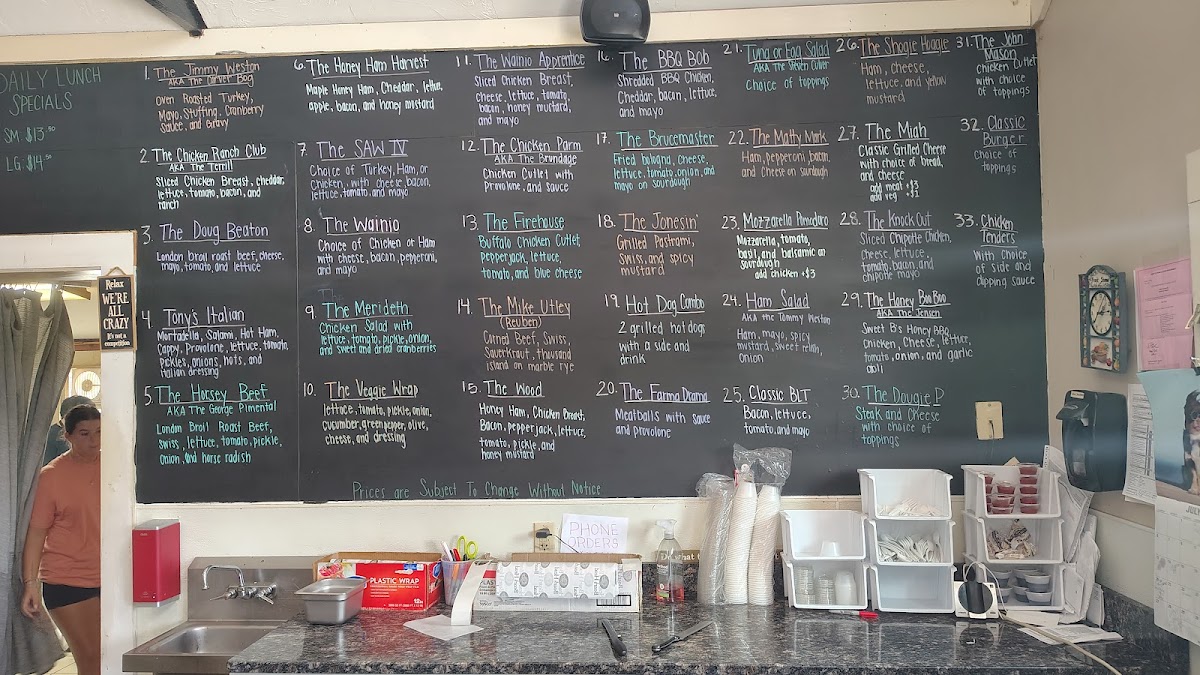 DAILY LUNCH
SPECIALS
SM. $13.50
LG. $14.50
1. The Jimmy Weston
AKA The Carver Bog
Oven Roasted Turkey,
Mayo, Stuffing, Cranberry
Sauce, and Gravy
2. The Chicken Ranch Club
AKA The Terrill
Sliced Chicken Breast, cheddar,
lettuce, tomato, bacon, and
ranch
3. The Doug Beaton
London broil roast beef, cheese,
mayo, tomato, and lettuce
4. Tony's Italian
Mortadella, Salami, Hot Ham,
Cappy, Provolone, lettuce, tomato,
pickles, onions, hots, and
italian dressing
5. The Horsey Beef
AKA The George Pimental
London Broil Roast Beef,
swiss, lettuce, tomato, pickle,
onion, and horse radish
6. The Honey Ham Harvest
Maple Honey Ham, Cheddar, lettuce,
apple, bacon, and honey mustard
7. The SAW IV
Choice of Turkey, Ham, or
Chicken, with cheese, bacon,
lettuce, tomato, and mayo
8. The Wainio
Choice of Chicken or Ham
with cheese, bacon, pepperoni,
and mayo
9. The Merideth
Chicken Salad with
lettuce, tomato, pickle, onion,
and sweetened dried cranberries
10. The Veggie Wrap
lettuce, tomato, pickle, onion,
cucumber, green pepper, olive,
cheese, and dressing
11. The Wainio Apprentice
Sliced Chicken Breast,
cheese, lettuce, tomato,
bacon, honey mustard,
and mayo
12. The Chicken Parm
AKA The Brundage
Chicken Cutlet with
Provolone, and sauce
13. The Firehouse
Buffalo Chicken Cutlet,
pepperjack, lettuce,
tomato, and blue cheese
14. The Mike Utley
(Reuben)
Corned Beef, Swiss,
Sauerkraut, thousand
island on marble rye
15. The Wood
Honey Ham, Chicken Breast,
Bacon, pepper jack, lettuce,
tomato, pickle, and
honey mustard
16. The BBQ Bob
Shredded BBQ Chicken,
Cheddar, bacon, lettuce,
and mayo
17. The Brucemaster
Fried bologna, cheese,
lettuce, tomato, onion, and
mayo on sourdough
18. The Jonesin'
Grilled Pastrami,
Swiss, and spicy
mustard
19. Hot Dog Combo
2 grilled hot dogs
with a side and
drink
20. The Farma Drama
Meatballs with sauce
and provolone
21. Tuna or Egg Salad
AKA The Steven Culver
choice of toppings
22. The Matty Mark
Ham, pepperoni, bacon,
and Cheese on sourdough
23. Mozzarella Pomodoro
Mozzarella, tomato,
basil, and balsamic on
sourdough
add chicken +$3
24. Ham Salad
AKA the Tommy Weston
Ham, mayo, spicy
mustard, sweet relish,
onion
25. Classic BLT
Bacon, lettuce,
tomato, and mayo
26. The Shogie Hoagie
Ham, cheese,
lettuce, and yellow
mustard
27. The Miah
Classic Grilled Cheese
with choice of bread,
and cheese
add meat +$3
add veg +$1
28. The Knock Out
Sliced Chipotle Chicken,
cheese, lettuce,
tomato, bacon, and
chipotle mayo
29. The Honey Boo Boo
AKA The Jensen
Sweet B's Honey BBQ
Chicken, Cheese, lettuce,
tomato, onion, and garlic
aoli
30. The Dougie P
Steak and Cheese
with choice of
toppings
31. The John
Mason
Chicken Cutlet
with choice
of toppings
32. Classic
Burger
Choice of
toppings
33. Chicken
Tenders
With Choice
of side and
dipping sauce
Prices are Subject To Change Without Notice
Relax
WE'RE
ALL
CRAZY
It's not a
competition
PHONE
ORDERS
PLASTIC WRAP